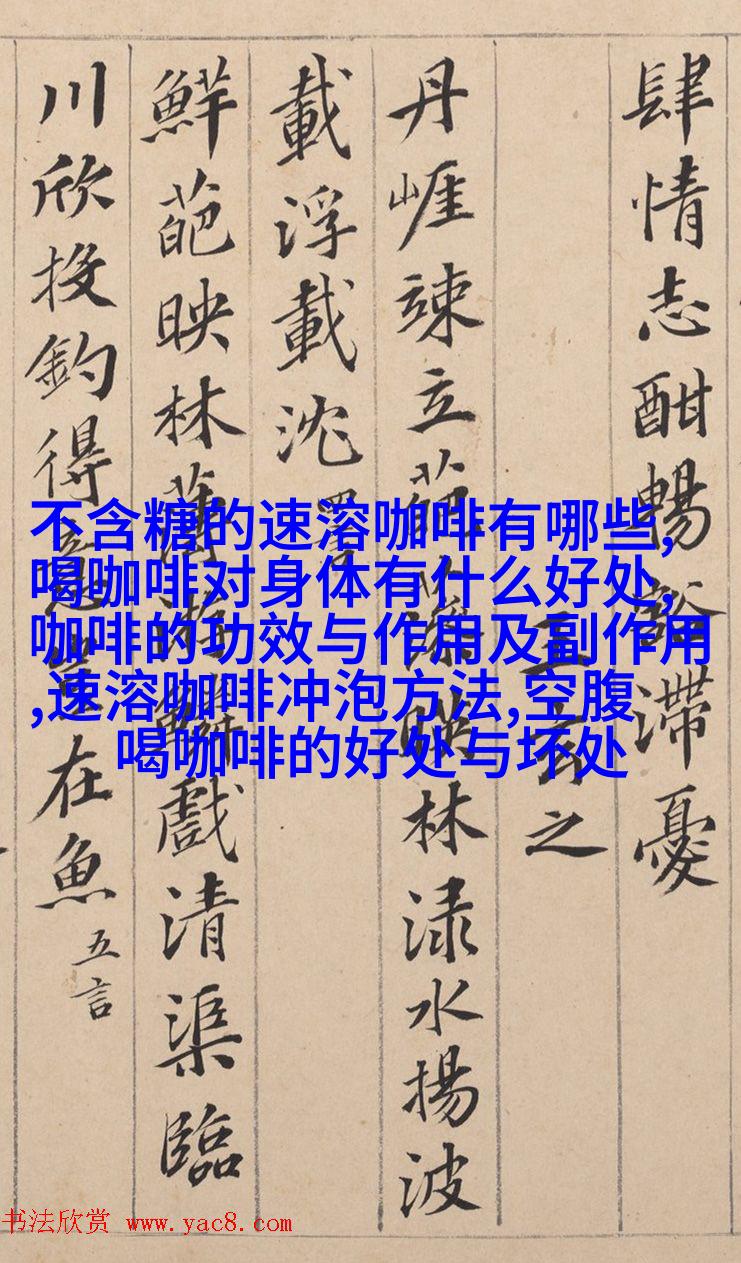 肆情志酣暢豁滯憂
王玄之
丹崖竦立葩藻暎林渌水揚波
載浮載沈 四言
鮮葩映林薄游鱗戲清渠臨
川欣投釣得意豈在魚 五言
不含糖的速溶咖啡有哪些,
喝咖啡对身体有什么好处,
咖啡的功效与作用及副作用
,速溶咖啡冲泡方法,空腹
喝咖啡的好处与坏处
书法欣赏 www.yac8.com